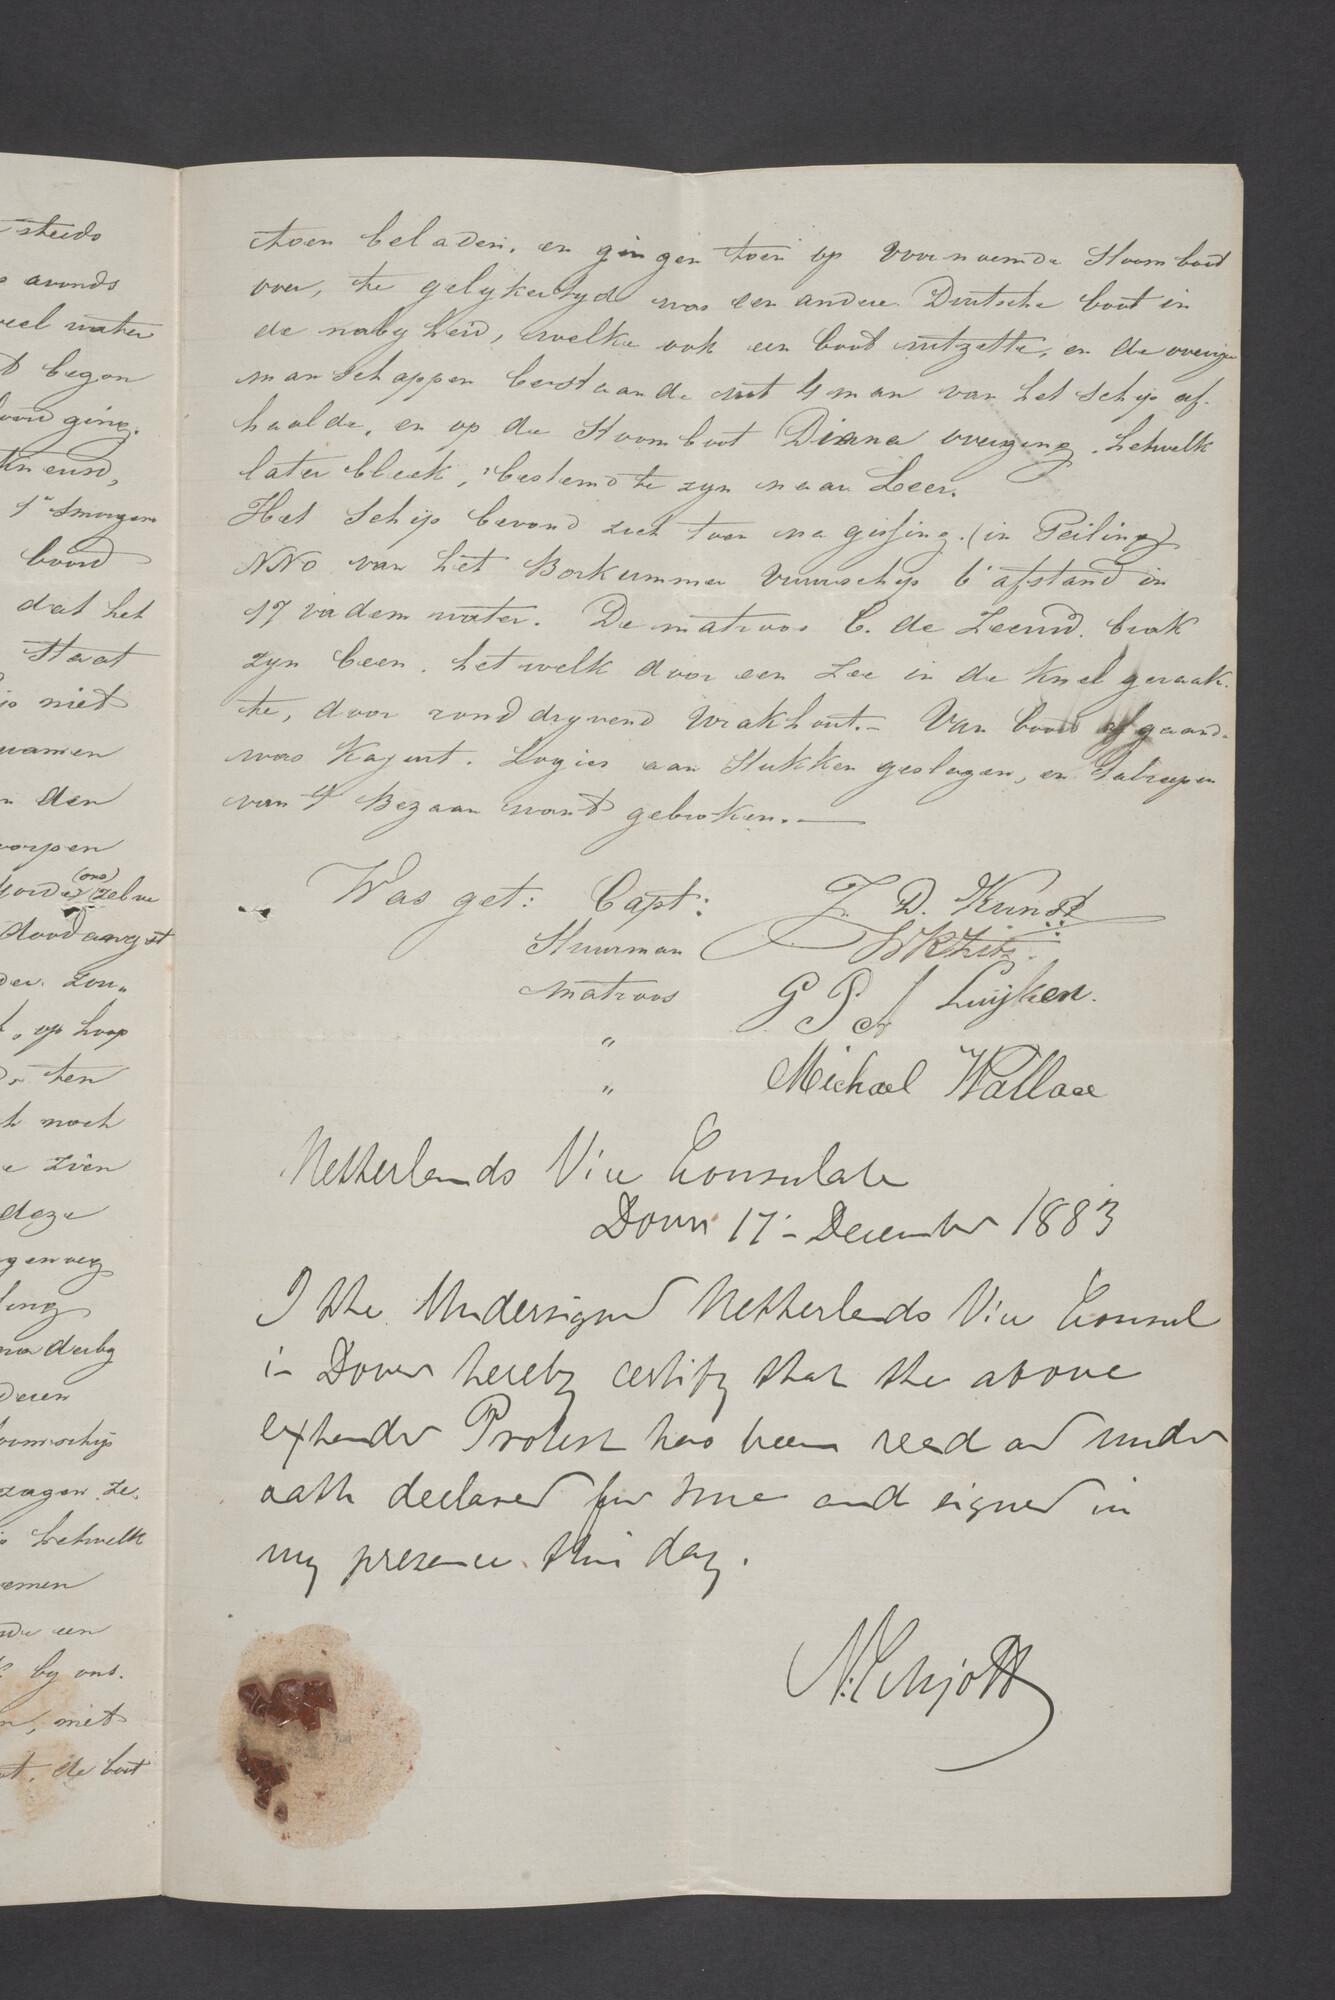 steeds
avonds
veel water
begon
boord ging.
boord
dat het
Staat
niet
kwamen
den
worpen
(ons)
zelve
doodangst
zou„
, op hoop
ten
noch
zien
deze
ling
naderby
deren
oomschip
zagen ze.
hetwelk
nemen
een
by ons.
, met
, de boot
toen beladen, en gingen toen op voornoemde Stoomboot
over, te gelykertyd was een andere Duitsche boot in
de nabyheid, welke ook een boot uitzette, en de overige
manschappen bestaande uit 4 man van het schip af-
haalde, en op de Stoomboot Diana overging, hetwelk
later bleek, bestemd te zyn naar Leer.
Het Schip bevond zich toen na gissing. (in Peiling)
NNO van het Borkummer vuurschip 6' afstand in
17 vadem water. De matroos C. de Zeeuw. brak
zyn been. hetwelk door een Zee in de Knel geraak-
te, door ronddryvend wrakhout.- Van boord afgaand-
was Kajuit. Logies aan Stukken geslagen, en
van 't Bezaan want gebroken.—
Was get: Capt: J. D. Kunst
Stuurman
matroos G P Luijken.
„
„ Michael Wallace
Netherlands Vice Consulate
Dover 17- December 1883
I the Undersigned Netherlands Vice Consul
in Dover hereby certify that the above
extended Protest has been read and under
oath declared for true and signed in
my presence this day.
N. Schjött